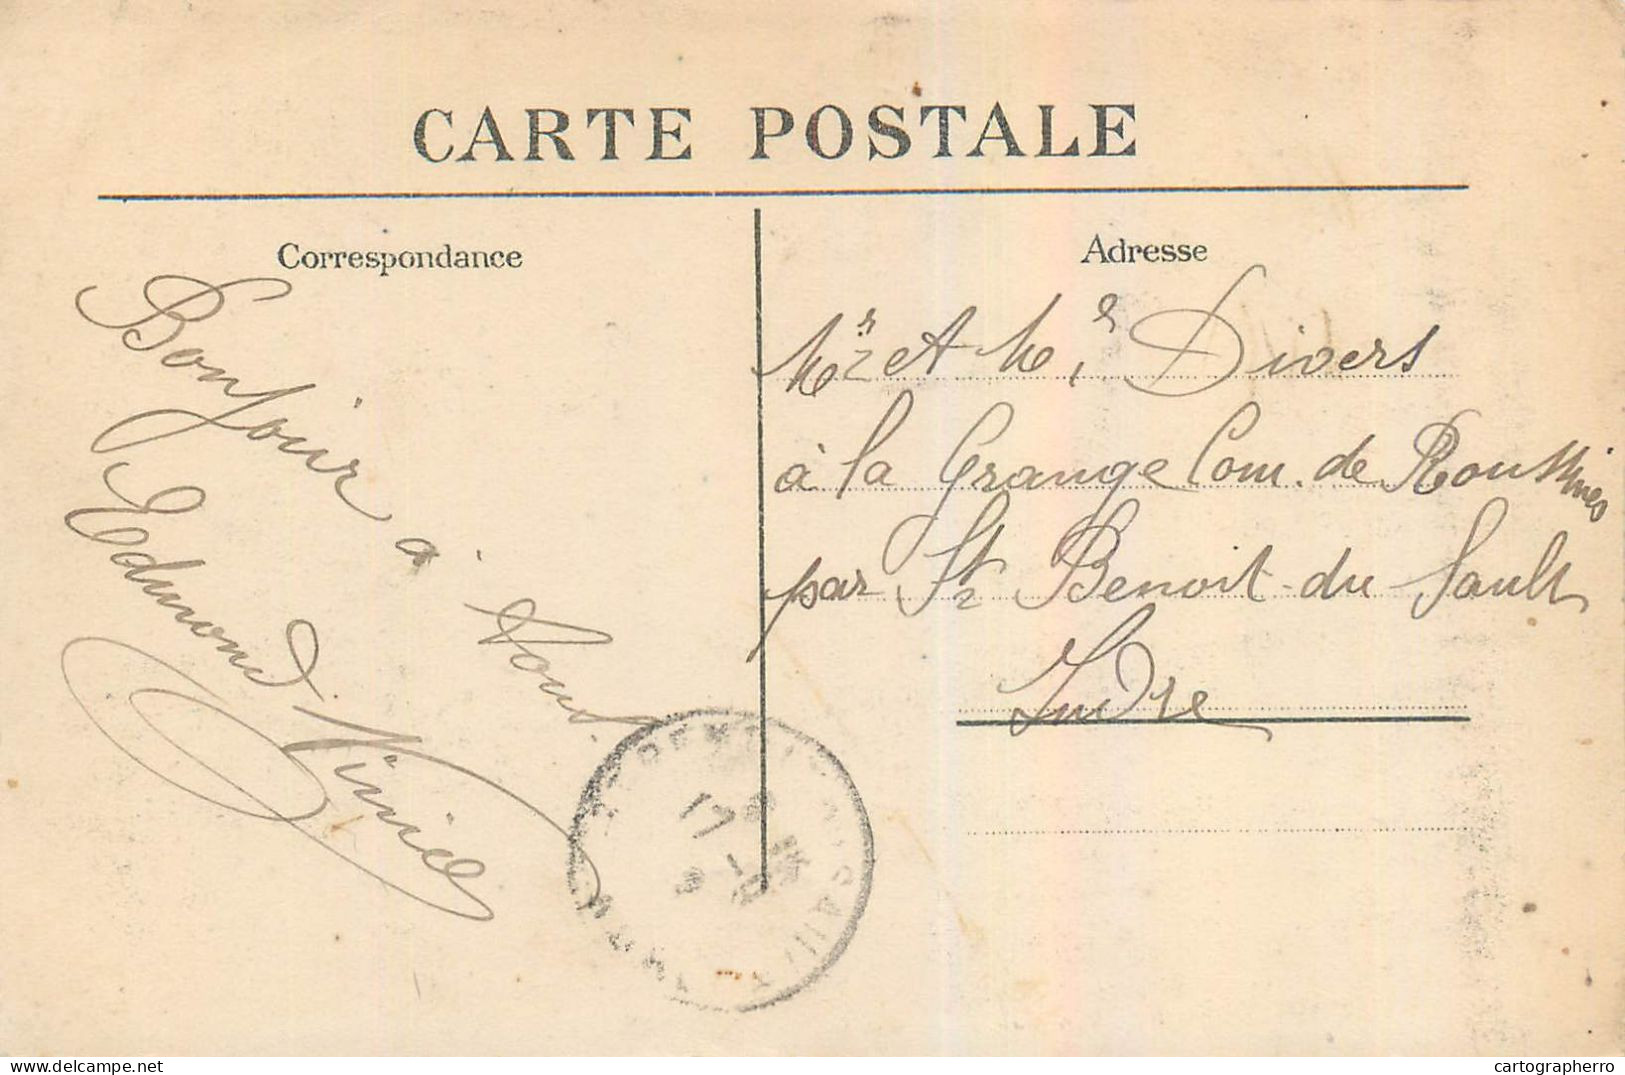 CARTE POSTALE
Correspondance
Bonjour à tous
Edmond
Adresse
Mr et Me Divers
à la Grange Com. de Roussines
par St Benoit-du Sault
Indre
cartographerro